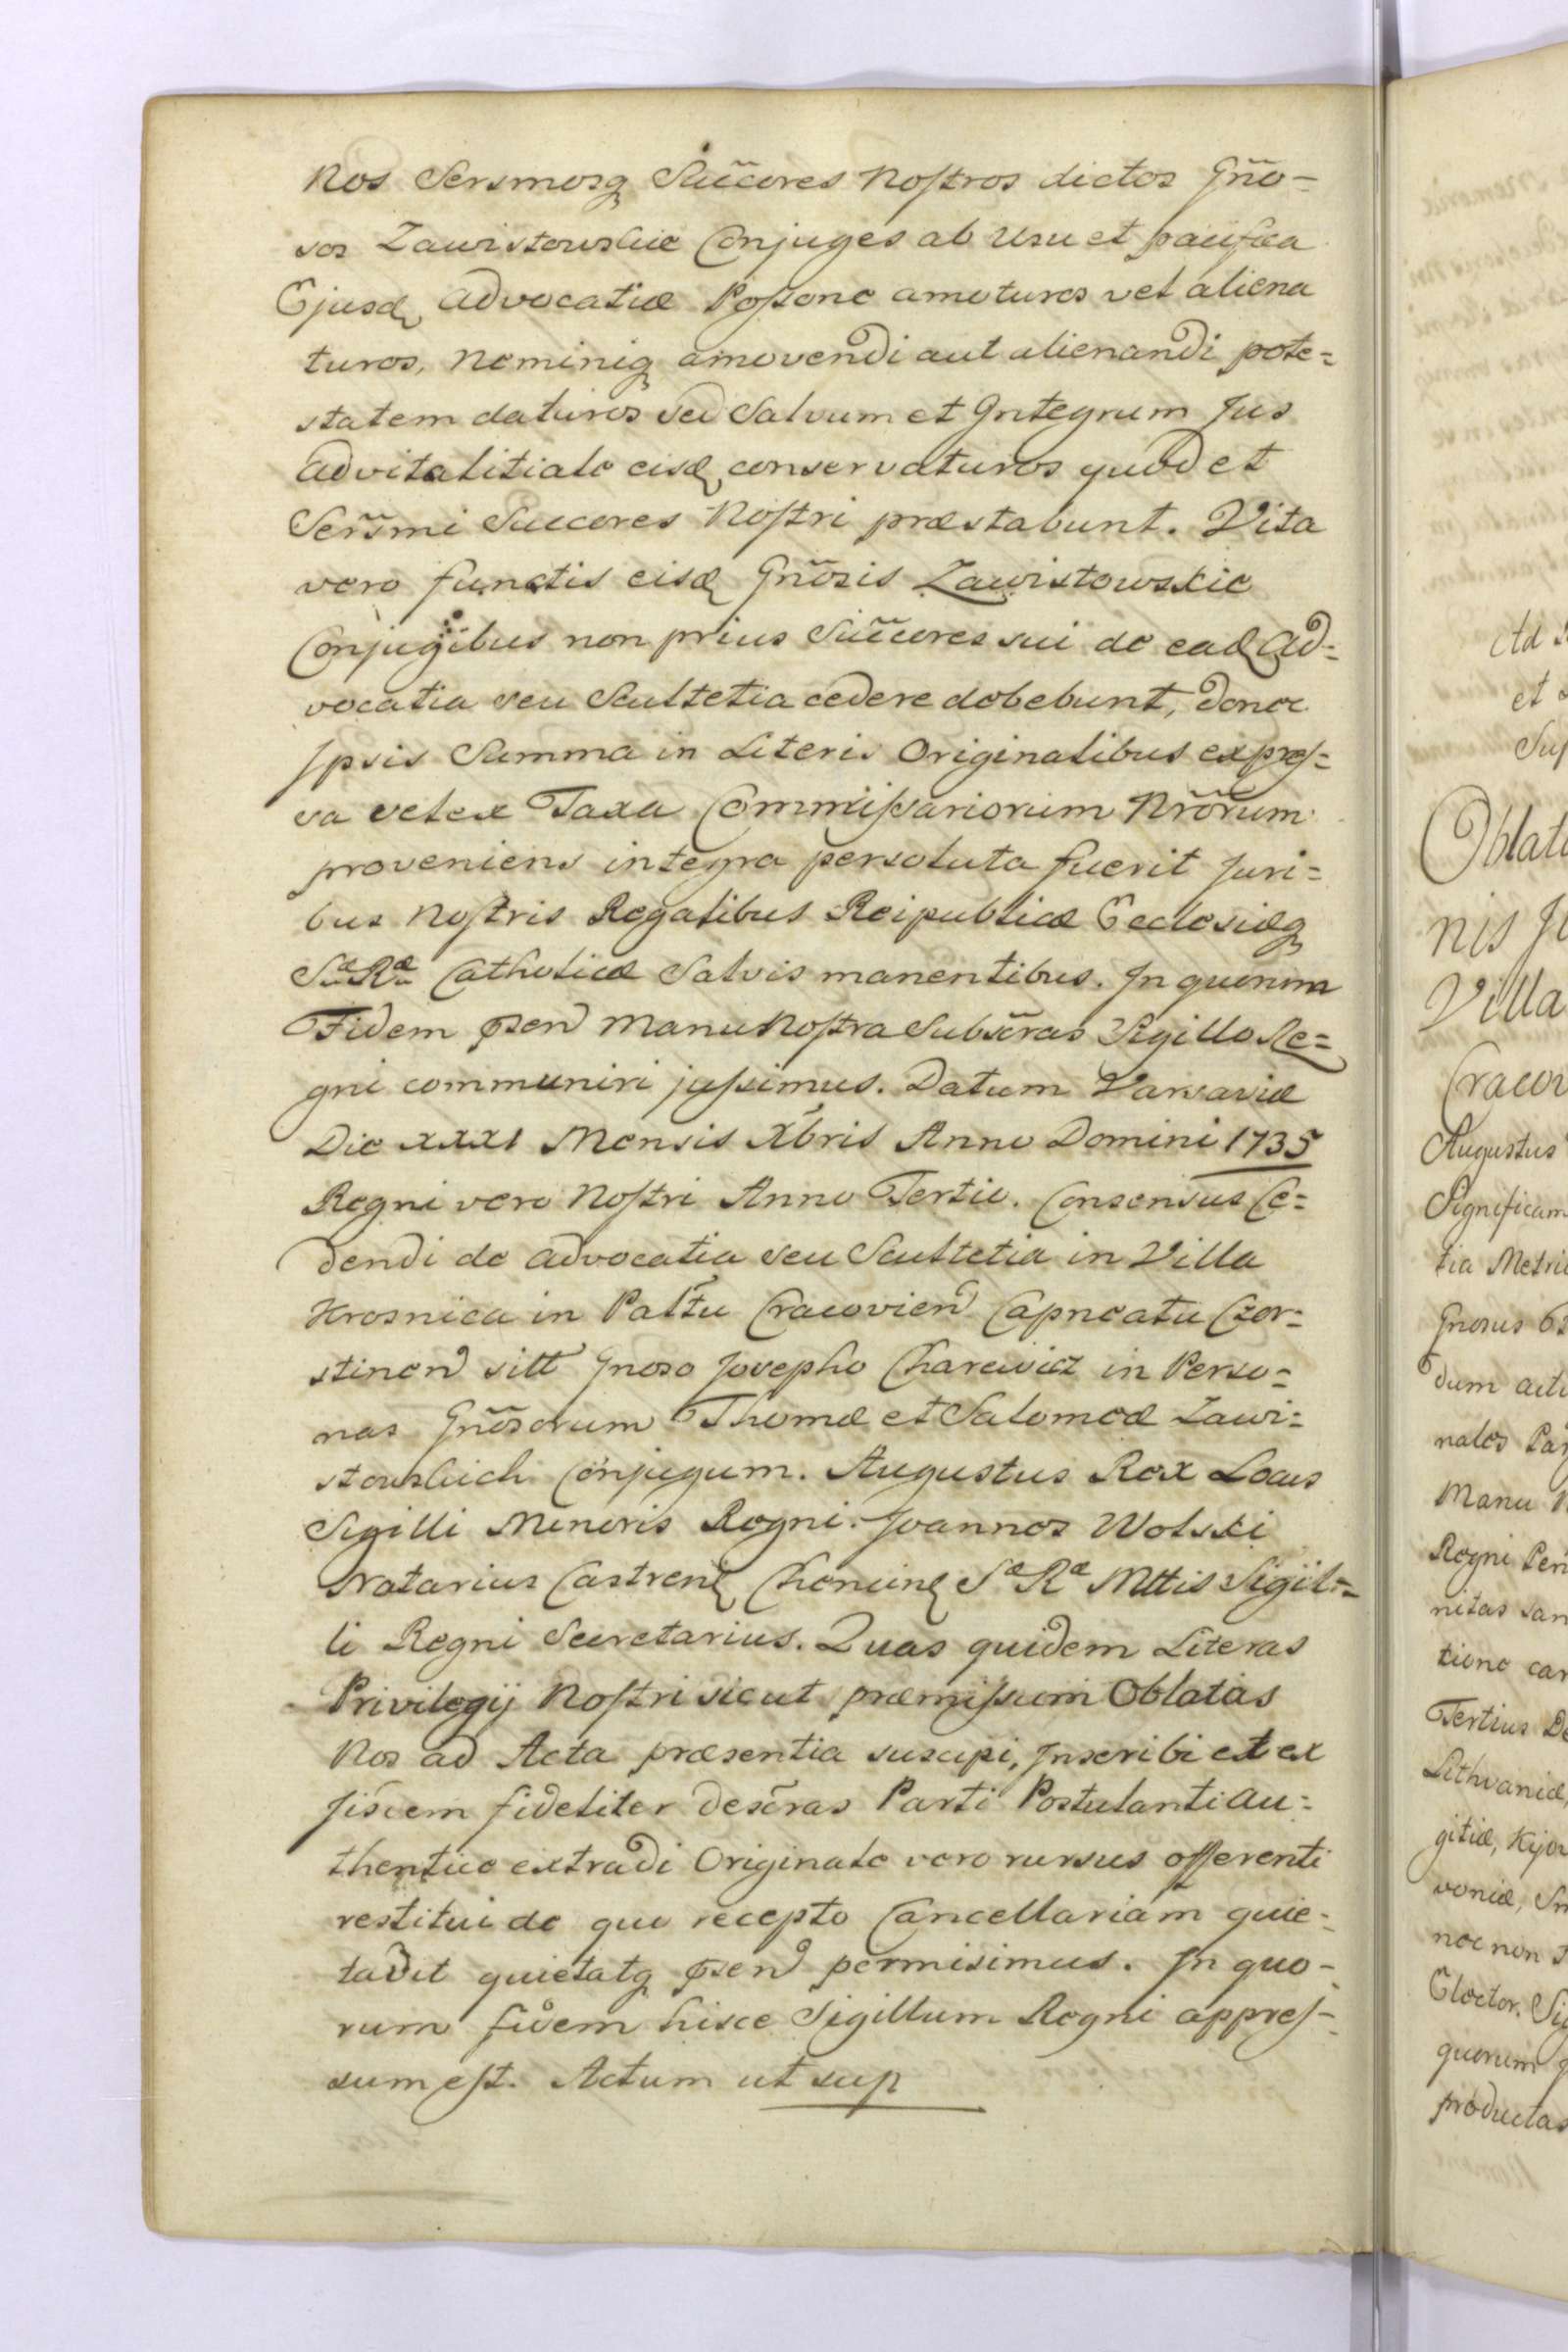 Nos Sersmosq Succores Nostros dictos Gño-
sos Zawistowskie Conjuges ab Usu et pacifica
Ejusd Advocatiæ Possone amoturos vel aliena
turos, Neminiq amovendi aut alienandi pote=
statem daturos sed Salvum et Integrum Jus
Advitalitiale eisd conservaturos quod et
Sersmi Succores Nostri præstabunt. Vita
vero functis eisd Gñosis Zawistowskie
Conjugibus non prius Succores sui de ead Ad=
vocatia seu Scultetia cedere debebunt, donec
Ipsis Summa in Literis Originalibus expres=
sa vel ex Taxa Commissariorum Nrorum
proveniens integra persoluta fuerit Juri=
bus Nostris Regalibus Reipublicæ Ecclesiæq
Sæ Ræ Catholicæ Salvis manentibus. In quorum
Fidem psen Manu Nostra Subscras Sigillo Re=
gni communiri jussimus. Datum Varsaviæ
Die XXXI Mensis Xbris Anno Domini 1735
Regni vero Nostri Anno Tertio. Consensus Ce=
dendi de Advocatia seu Scultetia in Villa
Krosnica in Palttu Cracovien Capneatu Czor=
stinen sitt Gnoso Josepho Charewicz in Perso=
nas Gñosorum Thomæ et Salomeæ Zawi=
stowskich Conjugum. Augustus Rex Locus
Sigilli Minoris Regni. Joannes Wolski
Notarius Castren Chencin Sæ Ræ Mttis Sigil=
li Regni Secretarius. Quas quidem Literas
Privilegij Nostri sicut præmissum Oblatas
Nos ad Acta præsentia suscipi, Inscribi et ex
Iisdem fideliter descras Parti Postulanti Au=
thentice extradi Originale vero rursus offerenti
restitui de quo recepto Cancellariam quie-
tavit quietatq psen permisimus. In quo-
rum fidem hisce Sigillum Regni appres-
sum est. Actum ut sup
Ad
et
Sup
Oblat
nis
Villa
Cracov
Augustus
Significam
tia Metri
Gnosus
dum acti
nales Par
Manu
Regni Per
nitas san
tione car
Tertius De
Lithvaniæ,
gitiæ, Kijov
voniæ, Sm
nec non
Elector. Si
quorum
productas